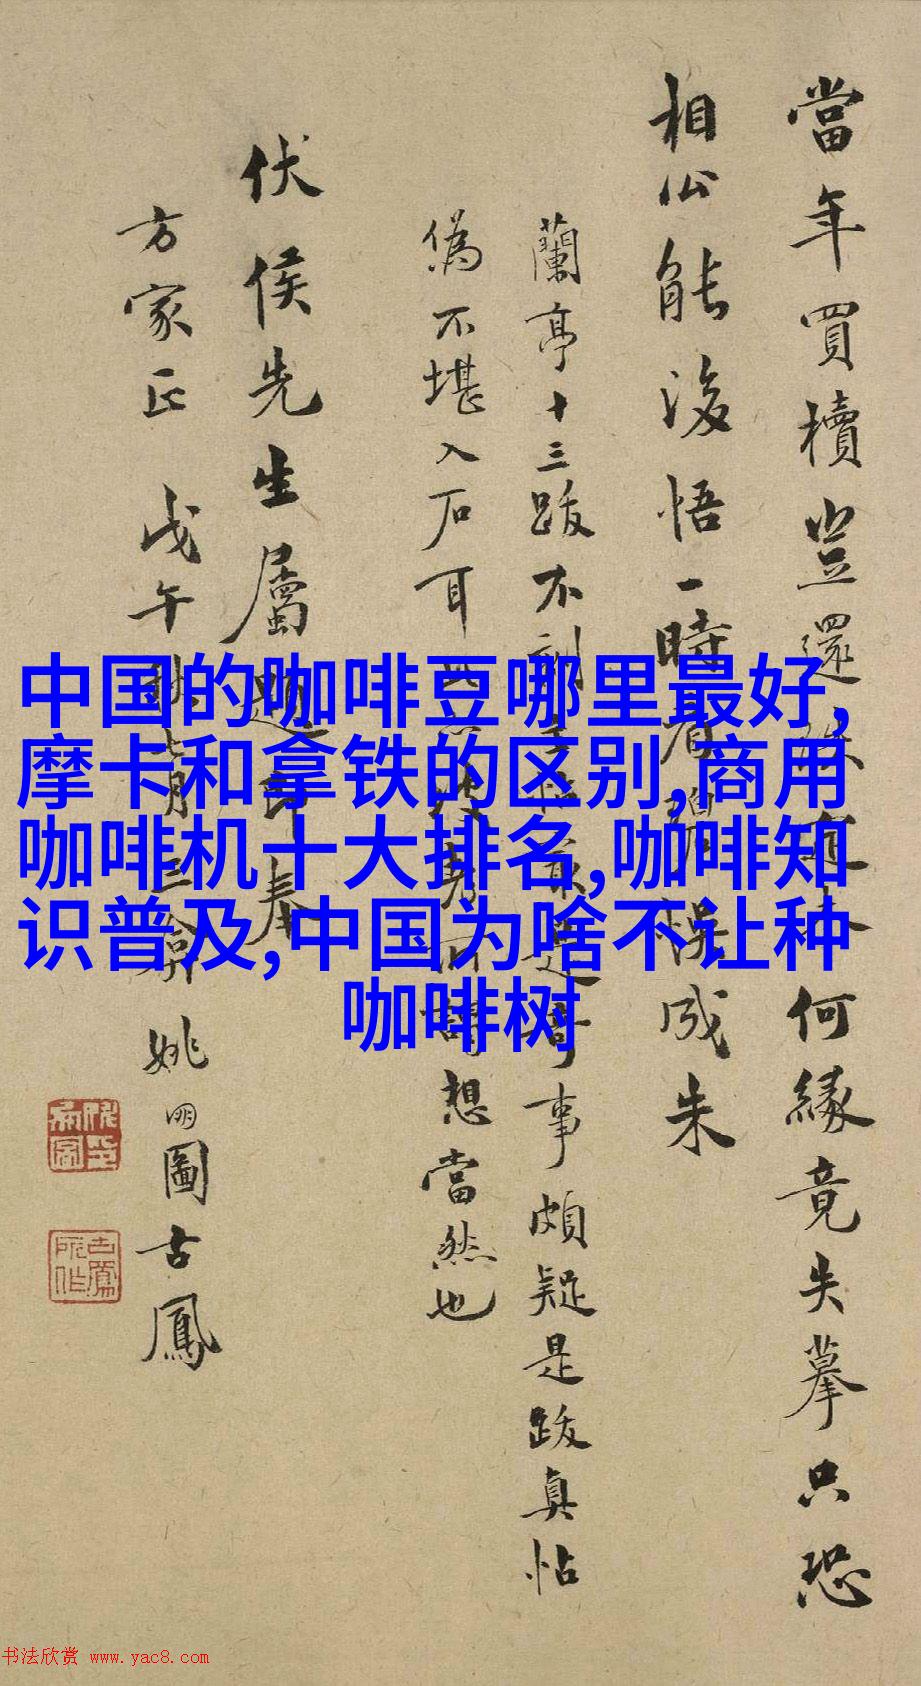 當年買櫝豈還珠何緣竟失摹只恐
相公能後悟一時看碧誤成朱
蘭亭十三跋不刻是奇事頗疑是跋真帖
偽不堪入石耳想當然也
伏侯先生屬題即奉
方家正 戊午秋七月三 姚朙圖古鳳
中国的咖啡豆哪里最好,
摩卡和拿铁的区别,商用
咖啡机十大排名,咖啡知
识普及,中国为啥不让种
咖啡树
书法欣赏 www.yac8.com